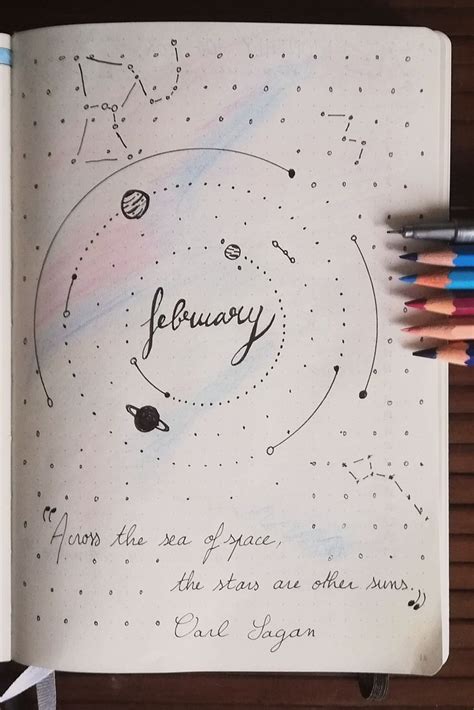 february
"Across the sea of space,
the stars are other suns."
Carl Sagan